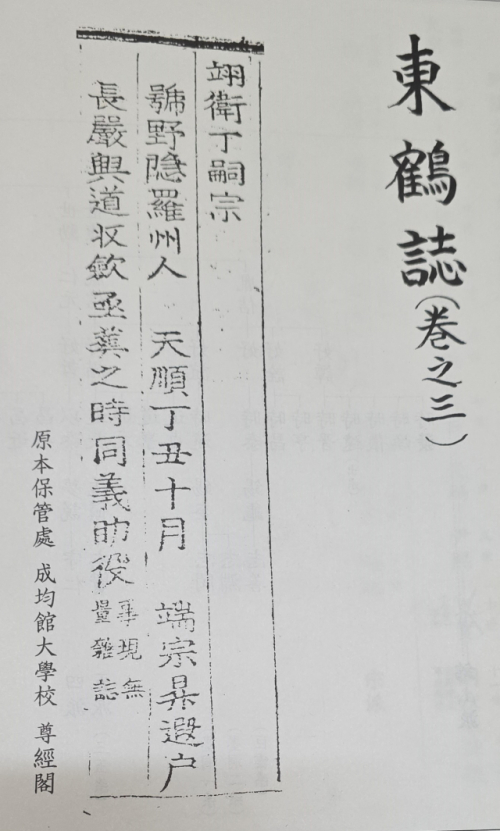 東鶴誌(卷之三)
翊衛丁嗣宗
號野隐羅州人 天順丁丑十月 端宗昇遐户
長嚴興道収斂亟葬之時同義助役 事現無
量雜誌
原本保管處 成均館大學校 尊經閣